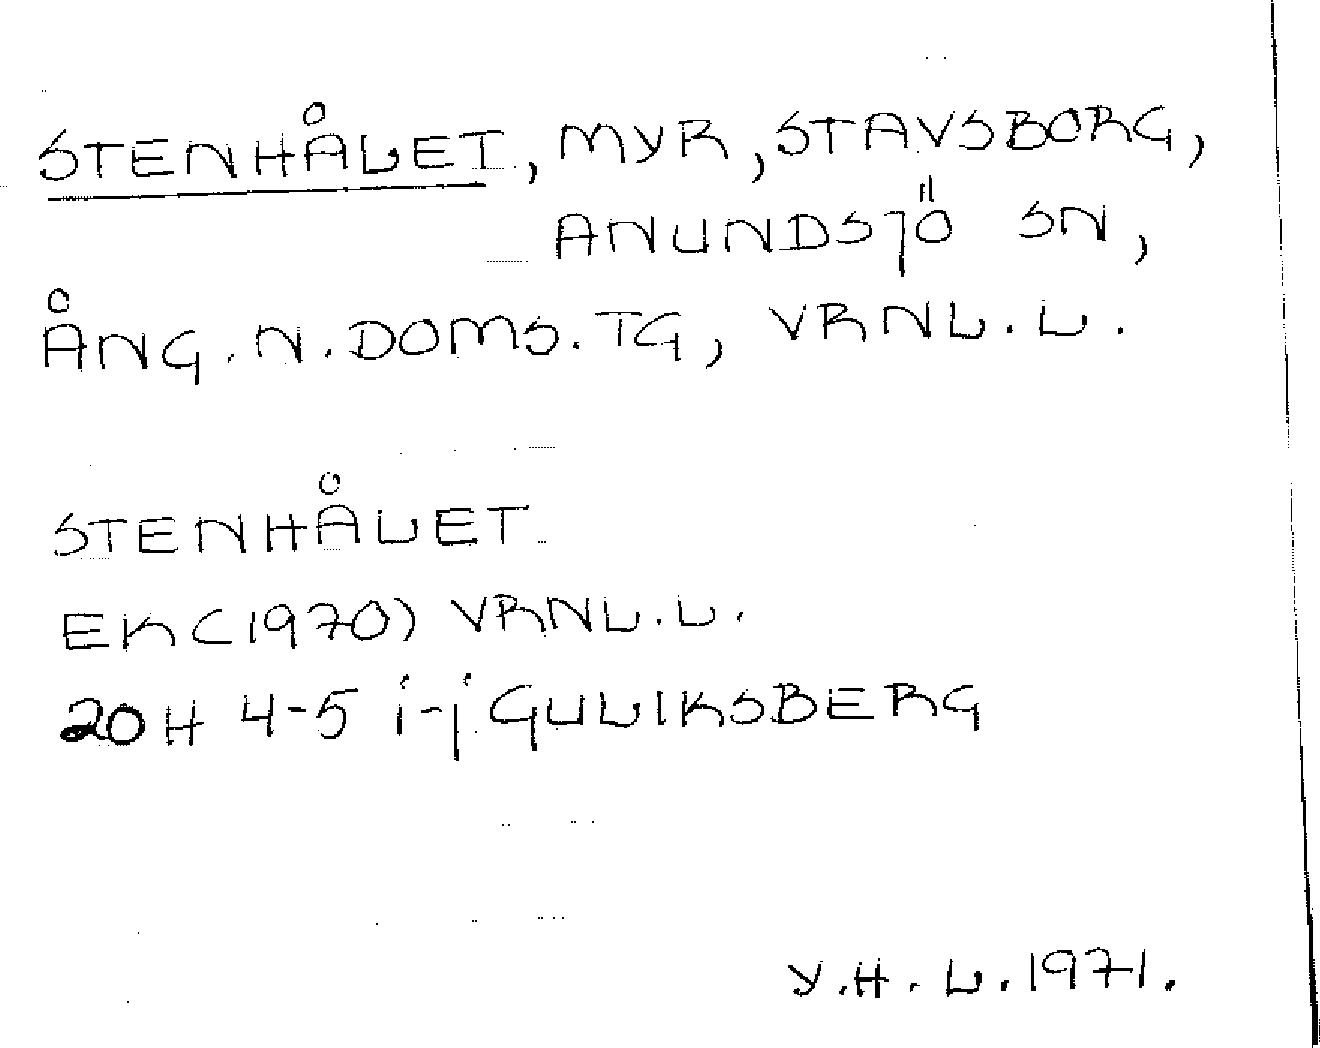 STENHÅLET, MYR, STAVSBORG,
ANUNDSJÖ SN,
ÅNG. N. DOMS. TG, VRNL. L.
STENHÅLET
EK (1970) VRNL. L.
20H 4-5 i-j GULIKSBERG
Y. H. L. 1971.